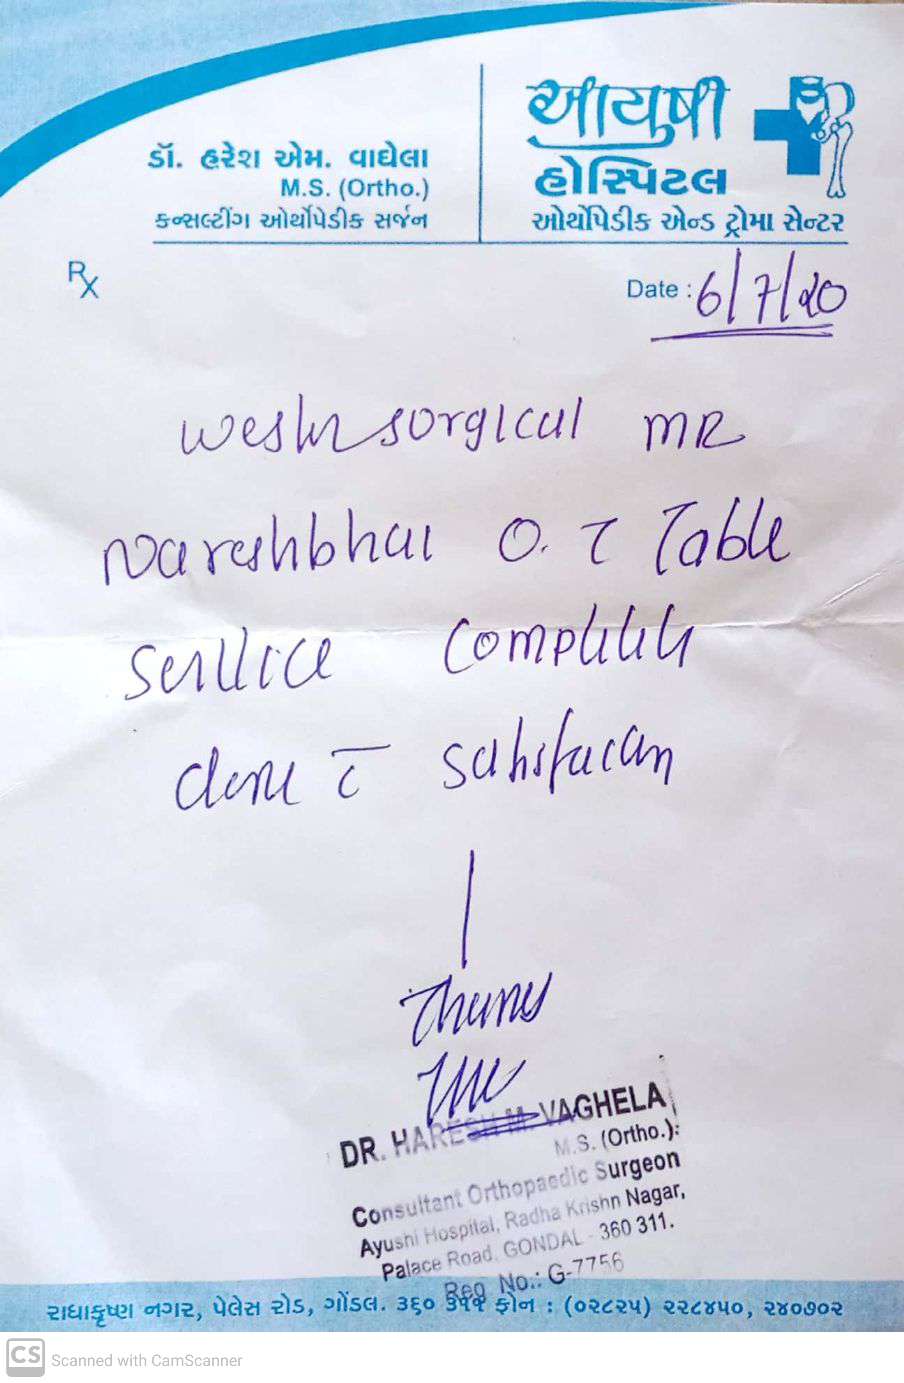 ડૉ. હરેશ એમ. વાઘેલા
M.S. (Ortho.)
કન્સલ્ટીંગ ઓર્થોપેડીક સર્જન
આયુષી
હોસ્પિટલ
ઓર્થોપેડીક એન્ડ ટ્રોમા સેન્ટર
Rx
Date : 6/7/20
sorgical MR
Nareshbhai O. T Table
service
done
DR. HARESH M. VAGHELA
M.S. (Ortho.):
Consultant Orthopaedic Surgeon
Ayushi Hospital, Radha Krishn Nagar,
Palace Road. GONDAL - 360 311.
Reg No.: G-7756
રાધાકૃષ્ણ નગર, પેલેસ રોડ, ગોંડલ. ૩૬૦ ૩૧૧ ફોન : (૦૨૮૨૫) ૨૨૮૪૫૦, ૨૪૦૭૦૨
CS Scanned with CamScanner